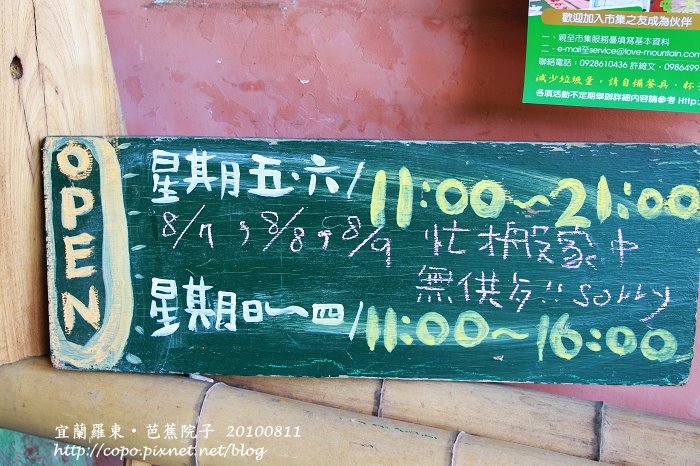 歡迎加入市集之友成為伙伴
一、親至市集服務臺填寫基本資料
二、e-mail至service@love-mountain.com
聯絡電話：0928610436 許綺文．0986499
減少垃圾量，請自備餐具．杯
各項活動不定期舉辦詳細內容請參考 Http:
OPEN
星期五.六/11:00~21:00
8/7，8/8，8/9 忙搬家中
無供歺!! sorry
星期日~四/11:00~16:00
宜蘭羅東‧芭蕉院子 20100811
http://copo.pixnet.net/blog